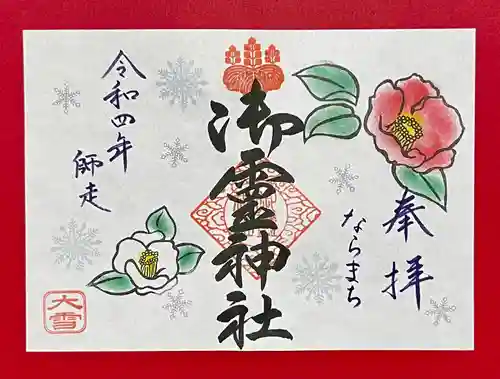 奉拝
ならまち
御霊神社
令和四年
師走
大雪